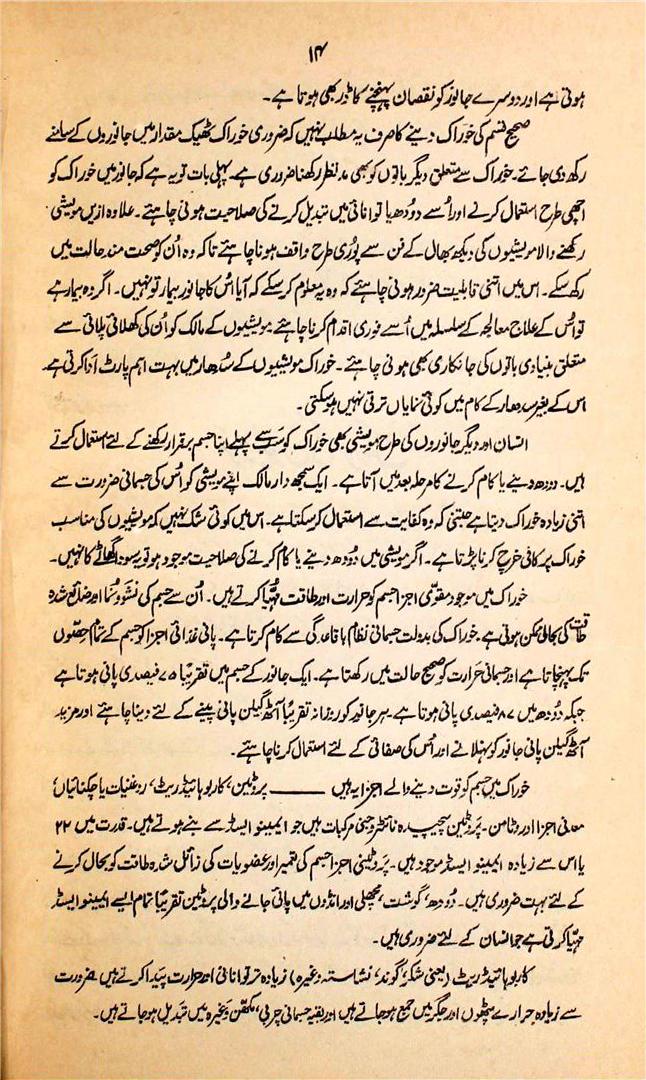 ۱۴
ہوتی ہے اور دوسرے جانور کو نقصان پہنچنے کا ڈر بھی ہوتا ہے۔
صحیح قسم کی خوراک دینے کا صرف یہ مطلب نہیں کہ ضروری خوراک ٹھیک مقدار میں جانوروں کے سامنے
رکھ دی جائے۔ خوراک سے متعلق دیگر باتوں کو بھی مدِنظر رکھنا ضروری ہے۔ پہلی بات تو یہ ہے کہ جانور میں خوراک کو
اچھی طرح استعمال کرنے اور اُسے دودھ یا توانائی میں تبدیل کرنے کی صلاحیت ہونی چاہئے۔ علاوہ ازیں مویشی
رکھنے والا مویشیوں کی دیکھ بھال کے فن سے پوری طرح واقف ہونا چاہئے تاکہ وہ اُن کو صحت مند حالت میں
رکھ سکے۔ اس میں اتنی قابلیت ضرور ہونی چاہئے کہ وہ یہ معلوم کر سکے کہ آیا اُس کا جانور بیمار تو نہیں۔ اگر وہ بیمار ہے
تو اُس کے علاج معالجہ کے سلسلہ میں اُسے فوری اقدام کرنا چاہئے۔ مویشیوں کے مالک کو اُن کی کھلائی پلائی سے
متعلق بنیادی باتوں کی جانکاری بھی ہونی چاہئے۔ خوراک مویشیوں کے سُدھار میں بہت اہم پارٹ ادا کرتی ہے۔
اس کے بغیر سدھار کے کام میں کوئی نمایاں ترقی نہیں ہو سکتی۔
انسان اور دیگر جانوروں کی طرح مویشی بھی خوراک کو سب سے پہلے اپنا جسم برقرار رکھنے کے لئے استعمال کرتے
ہیں۔ دودھ دینے یا کام کرنے کا مرحلہ بعد میں آتا ہے۔ ایک سمجھ دار مالک اپنے مویشی کو اُس کی جسمانی ضرورت سے
اتنی زیادہ خوراک دیتا ہے جتنی کہ وہ کفایت سے استعمال کر سکتا ہے۔ اس میں کوئی شک نہیں کہ مویشیوں کی مناسب
خوراک پر کافی خرچ کرنا پڑتا ہے۔ اگر مویشی میں دُودھ دینے یا کام کرنے کی صلاحیت موجود ہو تو یہ سودا گھاٹے کا نہیں۔
خوراک میں موجود مقوّی اجزا جسم کو حرارت اور طاقت مہیّا کرتے ہیں۔ اُن سے جسم کی نشو و نما اور ضائع شدہ
طاقت کی بحالی ممکن ہوتی ہے۔ خوراک کی بدولت جسمانی نظام باقاعدگی سے کام کرتا ہے۔ پانی غذائی اجزا کو جسم کے تمام حصّوں
تک پہنچاتا ہے اور جسمانی حرارت کو صحیح حالت میں رکھتا ہے۔ ایک جانور کے جسم میں تقریباً ۷۵ فیصدی پانی ہوتا ہے
جبکہ دُودھ میں ۸۷ فیصدی پانی ہوتا ہے۔ ہر جانور کو روزانہ تقریباً آٹھ گیلن پانی پینے کے لئے دینا چاہئے اور مزید
آٹھ گیلن پانی جانور کو نہلانے اور اُس کی صفائی کے لئے استعمال کرنا چاہئے۔
خوراک میں جسم کو قوت دینے والے اجزا یہ ہیں ——— پروٹین، کاربوہائیڈریٹ، روغنیات یا چکنائیاں،
معدنی اجزا اور وٹامن۔ پروٹین پیچیدہ نائٹروجنی مرکبات ہیں جو ایمینو ایسڈ سے بنے ہوتے ہیں۔ قدرت میں ۲۲
یا اس سے زیادہ ایمینو ایسڈ موجود ہیں۔ پروٹینی اجزا جسم کی تعمیر اور عضویات کی زائل شدہ طاقت کو بحال کرنے
کے لئے بہت ضروری ہیں۔ دُودھ، گوشت، مچھلی اور انڈوں میں پائی جانے والی پروٹین تقریباً تمام ایسے ایمینو ایسڈ
مہیّا کرتی ہے جو انسان کے لئے ضروری ہیں۔
کاربوہائیڈریٹ (یعنی شکر، گوند، نشاستہ وغیرہ) زیادہ تر توانائی اور حرارت پیدا کرتے ہیں۔ ضرورت
سے زیادہ حرارے پٹھوں اور جگر میں جمع ہو جاتے ہیں اور بقیہ جسمانی چربی، مکھن وغیرہ میں تبدیل ہو جاتے ہیں۔